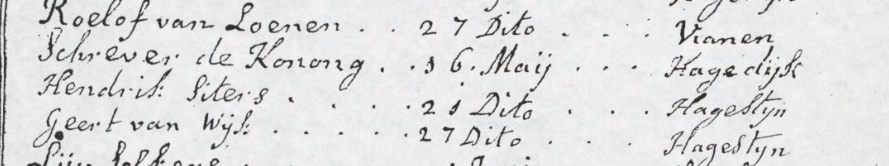 Roelof van Loenen . . 27 Dito . . . Vianen
Schrever de Konong . . 16. Maij . . . Hagedijk
Hendrik Siters . . . . 21 Dito . . . Hagestijn
Geert van Wijk . . . . . 27 Dito . . . Hagestijn